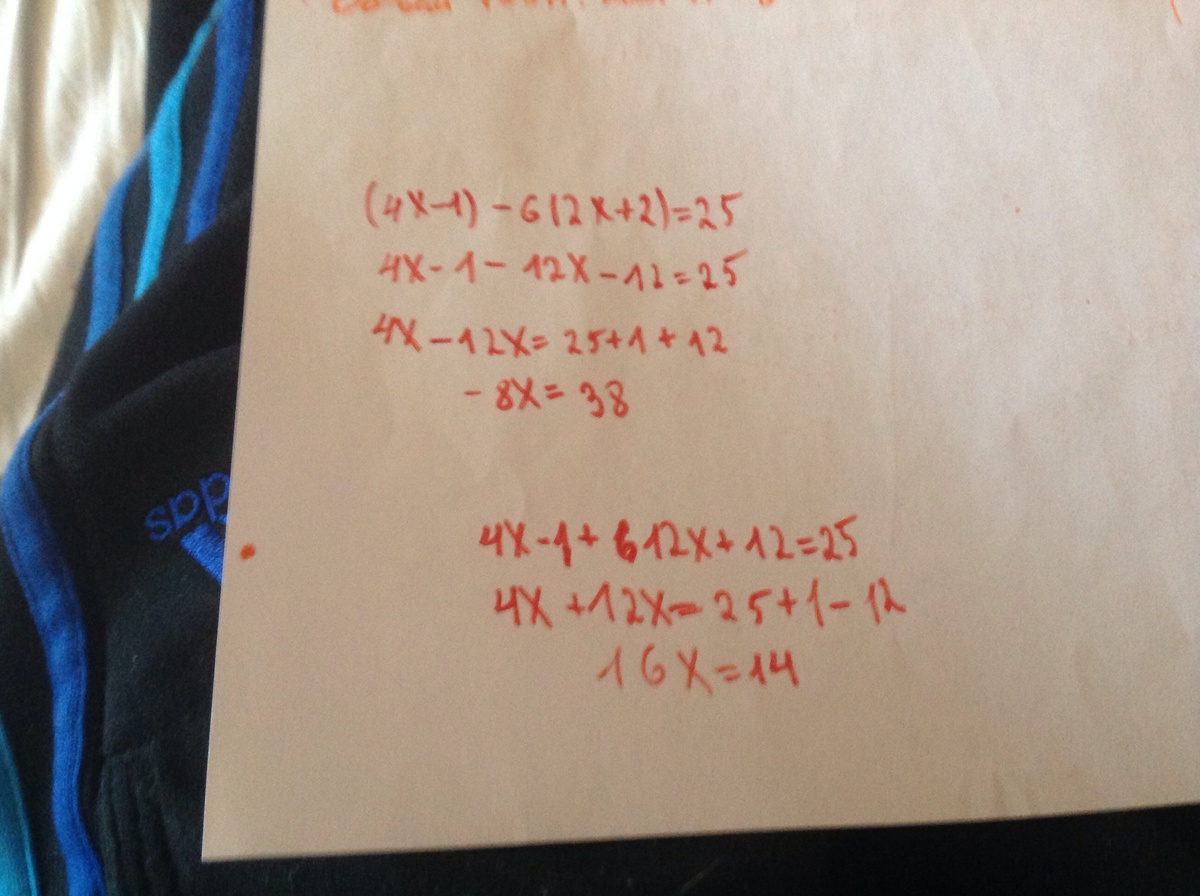 (4x-1) - 6(2x+2)=25
4x - 1 - 12x - 12 = 25
4x - 12x = 25+1+12
- 8x = 38
adidas
4x-1+ 612x+12=25
4x +12x= 25+1-12
16x=14